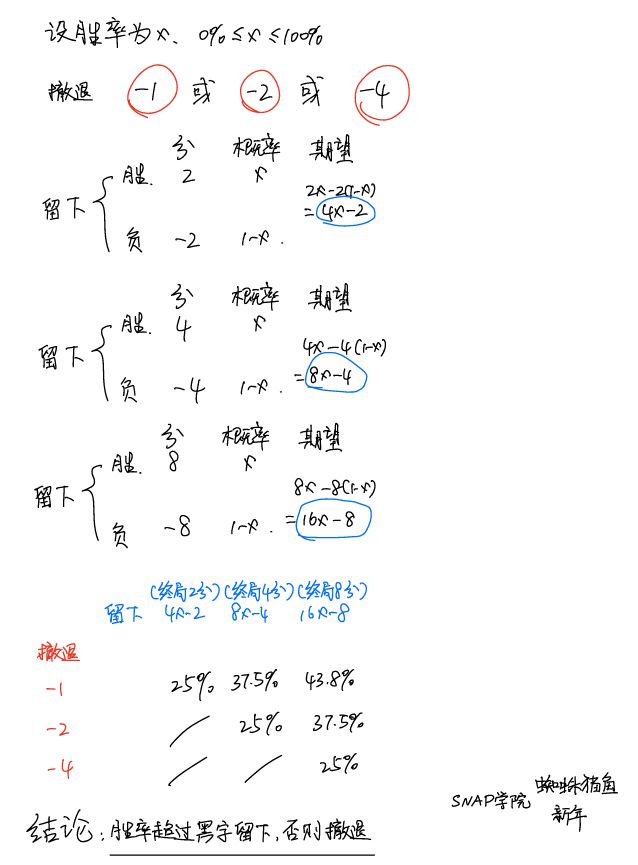 设胜率为x、0%≤x≤100%
撤退 -1 或 -2 或 -4
分 概率 期望
留下 胜. 2 x 2x-2(1-x)
=4x-2
负 -2 1-x.
分 概率 期望
留下 胜. 4 x 4x-4(1-x)
=8x-4
负 -4 1-x.
分 概率 期望
留下 胜. 8 x 8x-8(1-x)
=16x-8
负 -8 1-x.
(终局2分) (终局4分) (终局8分)
留下 4x-2 8x-4 16x-8
撤退
-1 25% 37.5% 43.8%
-2 / 25% 37.5%
-4 / / 25%
SNAP学院 蜘蛛猪角
新年
结论:胜率超过黑字留下,否则撤退